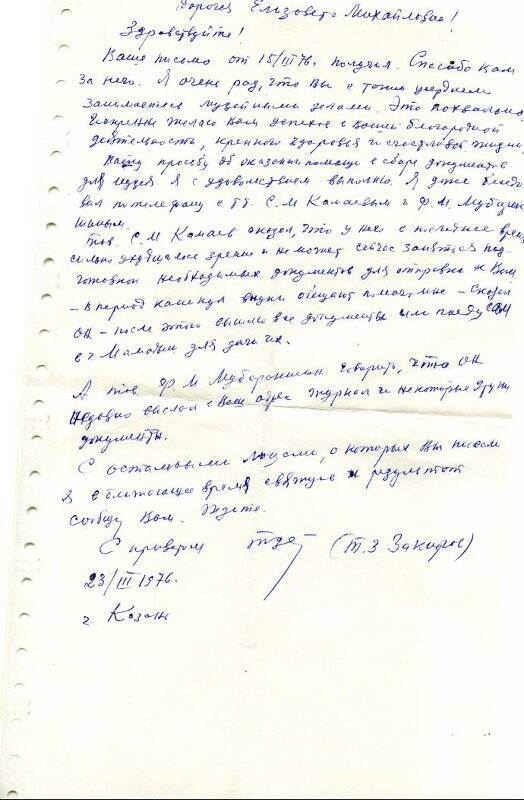 Дорогая Елизавета Михайловна!
Здравствуйте!
Ваше письмо от 15/III 76. получил. Спасибо Вам
за него. Я очень рад, что Вы с таким усердием
занимаетесь музейными делами. Это похвально.
Искренне желаю Вам успехов в Вашей благородной
деятельности, крепкого здоровья и счастливой жизни.
Вашу просьбу об оказании помощи в сборе документов
для музея я с удовольствием выполню. Я уже беседо
вал по телефону с тт. С.М Камаевым и Ф.М. Мубарак
шиным.
Тов. С.М Камаев сказал, что у него в последнее время
сильно ухудшилось зрение и не может сейчас заняться под-
готовкой необходимых документов для отправки к Вам
- в период каникул внуки обещают помочь мне - сказал
он - после этого вышлю все документы или поеду сам
в г Мамадыш для дачи их.
А тов. Ф.М Мубаракшин говорит, что он
недавно выслал в Ваш адрес журнал и некоторые другие
документы.
С остальными лицами, о которых Вы писали
я в ближайшее время свяжусь и результат
сообщу Вам. Ждите.
С приветом (Т.З Закиров)
23/III 1976.
г. Казань